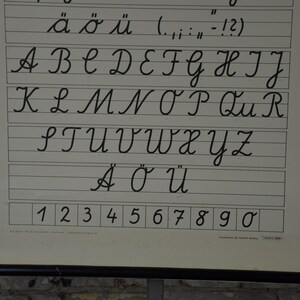 ä ö ü (.,¡;:„"-!?)
A B C D E F G H I J
K L M N O P Qu R
S T U V W X Y Z
Ä Ö Ü
1 2 3 4 5 6 7 8 9 0